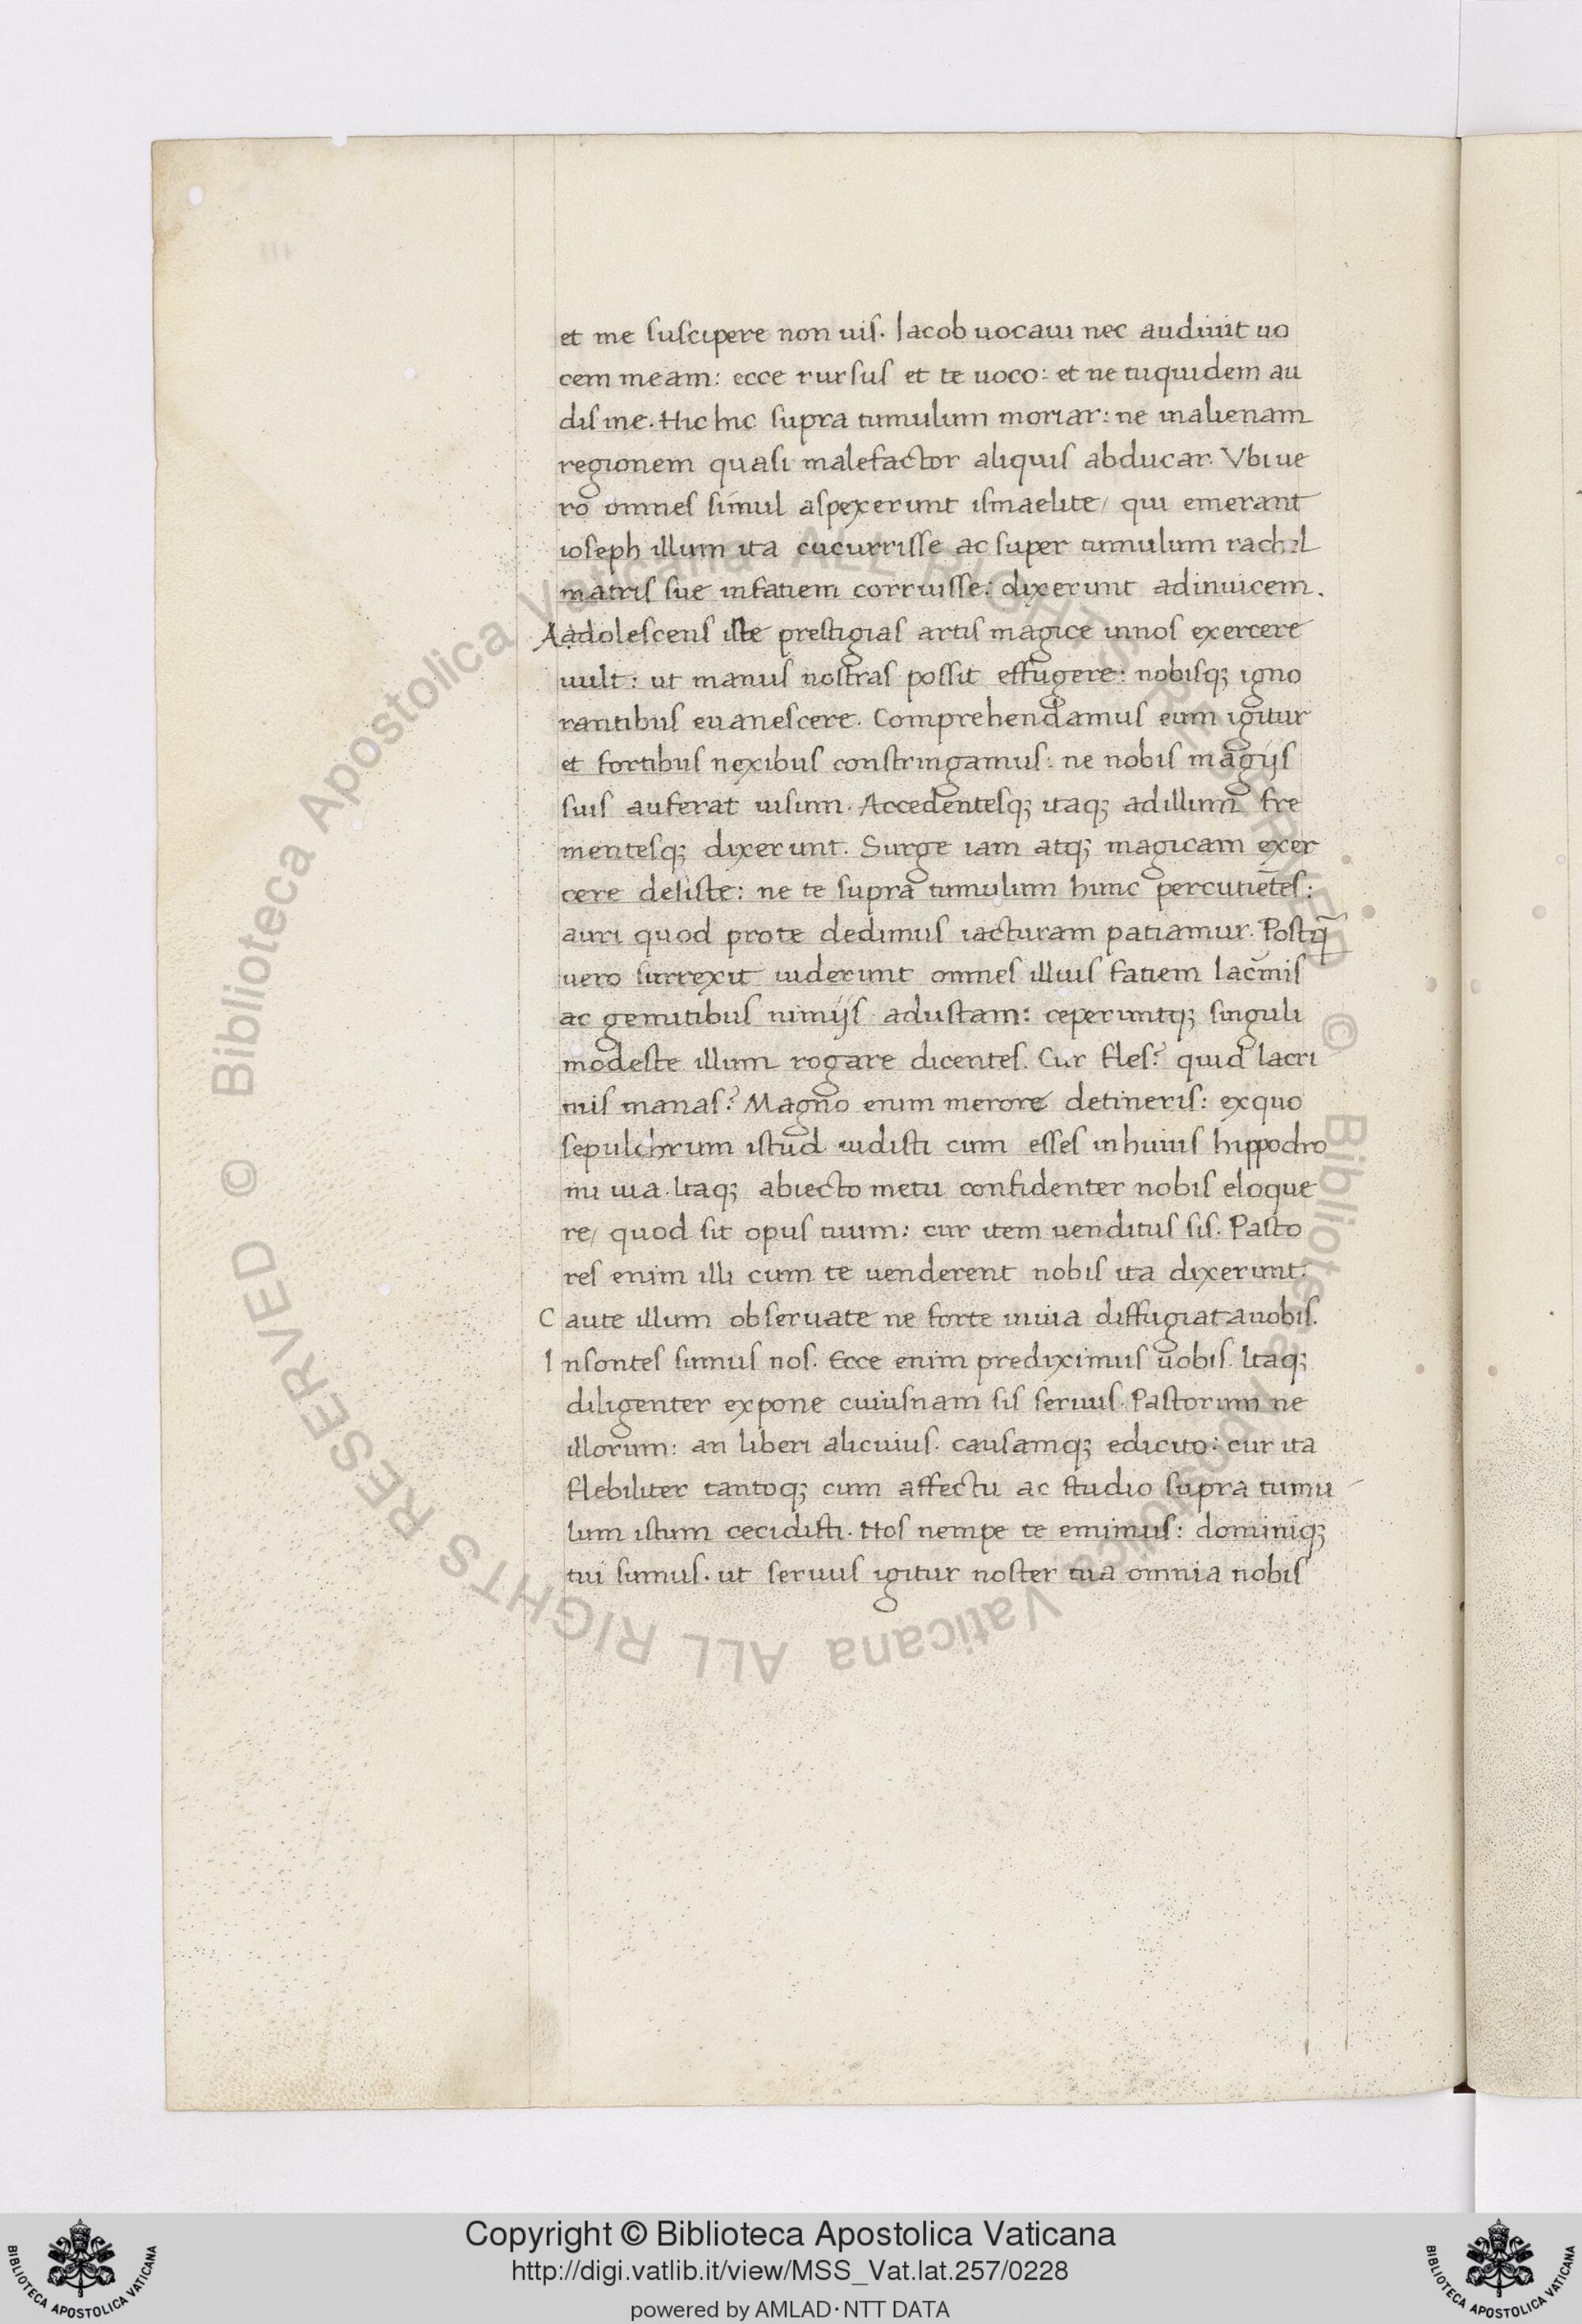 et me suscipere non uis. Iacob uocaui nec audiuit uo
cem meam: ecce rursus et te uoco: et ne tuquidem au
dis me. Hic hic supra tumulum moriar: ne inalienam
regionem quasi malefactor aliquis abducar. Vbi ue
ro omnes simul aspexerunt ismaelite/ qui emerant
ioseph illum ita cucurrisse ac super tumulum rachel
matris sue infatiem corruisse: dixerunt adinuicem.
Aadolescens iste prestigias artis magice innos exercere
uult: ut manus nostras possit effugere: nobisq; igno
rantibus euanescere. Comprehendamus eum igitur
et fortibus nexibus constringamus: ne nobis magijs
suis auferat uisum. Accedentesq; itaq; adillum fre
mentesq; dixerunt. Surge iam atq; magicam exer
cere desiste: ne te supra tumulum hunc percutiētes:
auri quod prote dedimus iacturam patiamur. Postq̄
uero surrexit uiderunt omnes illius fatiem lac̄mis
ac gemitibus nimijs adustam: ceperuntq; singuli
modeste illum rogare dicentes. Cur fles? quid lacri
mis manas? Magno enim merore detineris: exquo
sepulchrum istud uidisti cum esses inhuius hippodro
mi uia. Itaq; abiecto metu confidenter nobis eloque
re/ quod sit opus tuum: cur item uenditus sis. Pasto
res enim illi cum te uenderent nobis ita dixerunt:
Caute illum obseruate ne forte inuia diffugiat auobis.
Insontes sumus nos. Ecce enim prediximus uobis. Itaq;
diligenter expone cuiusnam sis seruus. Pastorum ne
illorum: an liberi alicuius. causamq; edicito: cur ita
flebiliter tantoq; cum affectu ac studio supra tumu
lum istum cecidisti. Nos nempe te emimus: dominiq;
tui sumus. ut seruus igitur noster tua omnia nobis
Biblioteca Apostolica Vaticana ALL RIGHTS RESERVED ©
Biblioteca Apostolica Vaticana ALL RIGHTS RESERVED ©
Copyright © Biblioteca Apostolica Vaticana
http://digi.vatlib.it/view/MSS_Vat.lat.257/0228
powered by AMLAD·NTT DATA
BIBLIOTECA APOSTOLICA VATICANA
BIBLIOTECA APOSTOLICA VATICANA